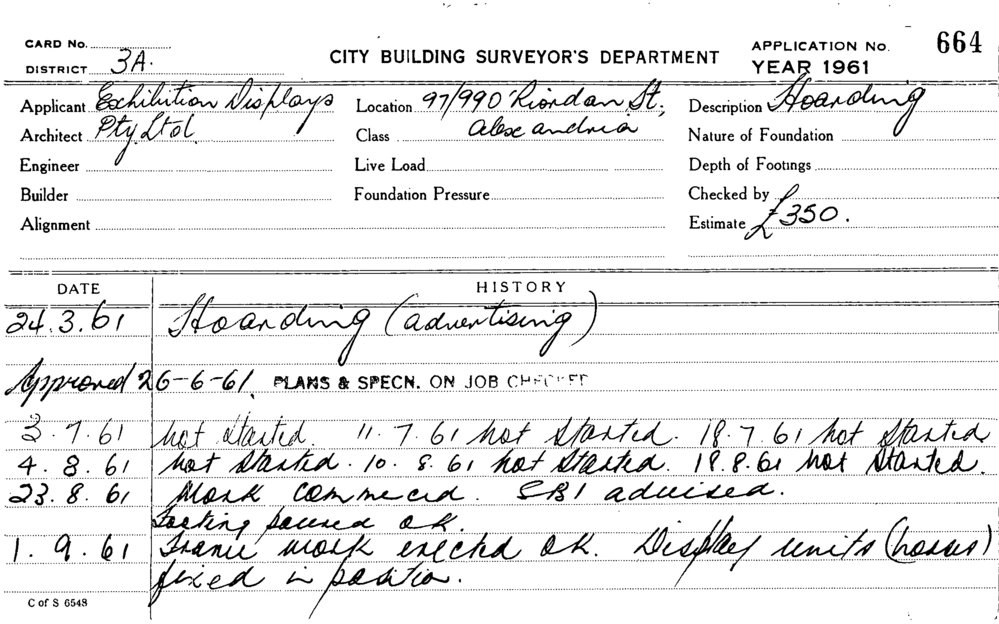 CARD No.
CITY BUILDING SURVEYOR'S DEPARTMENT
APPLICATION No. 664
DISTRICT 3A.
YEAR 1961
Applicant Exhibition Displays
Location 97/99 O'Riordan St.,
Description Hoarding
Architect Pty Ltd
Class Alexandria
Nature of Foundation
Engineer
Live Load
Depth of Footings
Builder
Foundation Pressure
Checked by
Alignment
Estimate £350.
DATE HISTORY
24.3.61 Hoarding (advertising)
Approved 26-6-61. PLANS & SPECN. ON JOB CHECKED
3.7.61 not started. 11.7.61 not started. 18.7.61 not started
4.8.61 not started. 10.8.61 not started. 18.8.61 not started.
23.8.61 Work commeced. SBI advised.
Footing poured ok.
1.9.61 Frame work erected ok. Display units (
fixed in position.
C of S 6548